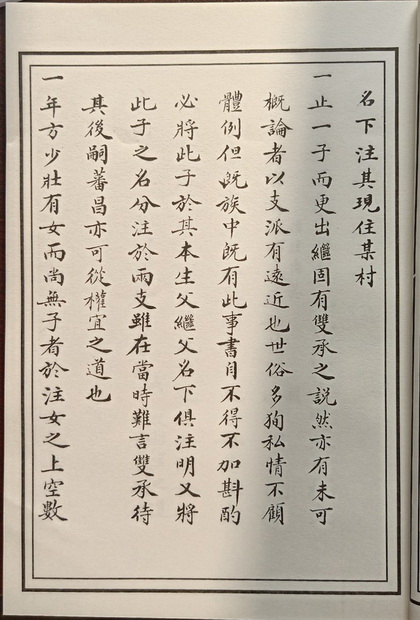 名下注其現住某村
一止一子而更出繼固有雙承之說然亦有未可
概論者以支派有遠近也世俗多狥私情不顧
體例但旣族中旣有此事書自不得不加斟酌
必將此子於其本生父繼父名下俱注明又將
此子之名分注於兩支雖在當時難言雙承待
其後嗣蕃昌亦可從權宜之道也
一年方少壯有女而尚無子者於注女之上空數